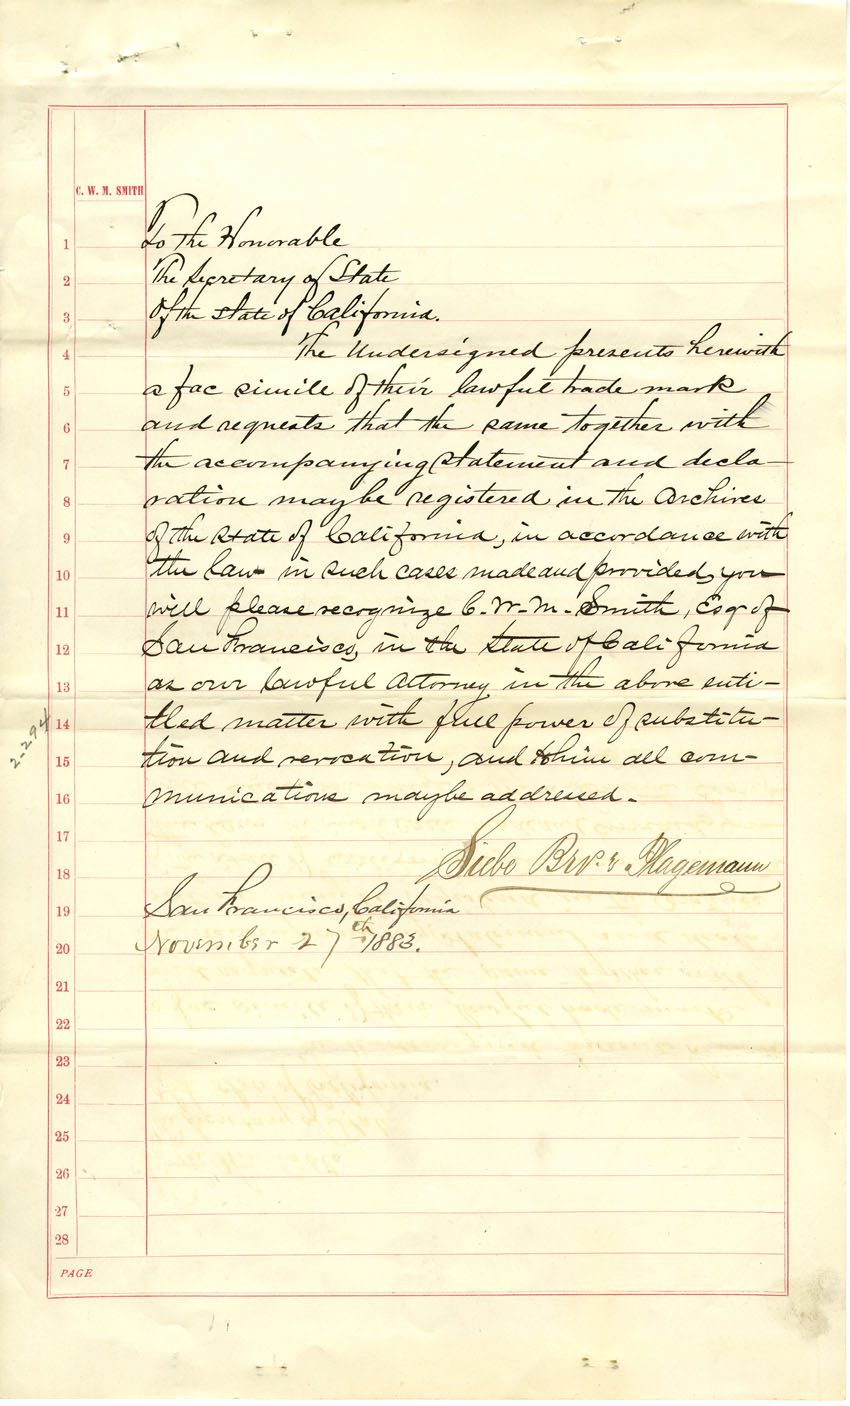 C. W. M. SMITH
1 To the Honorable
2 The Secretary of State
3 Of the State of California.
4 The Undersigned presents herewith
5 a fac simile of their lawful trade mark
6 and requests that the same together with
7 the accompanying statement and decla-
8 ration may be registered in the Archives
9 of the State of California, in accordance with
10 the law in such cases made and provided, you
11 will please recognize C. W. M. Smith, Esqr of
12 San Francisco, in the State of California
13 as our lawful Attorney in the above enti-
14 tled matter with full power of substitu-
15 tion and revocation, and to him all com-
16 munications may be addressed.
17
18 Siebe Bros. & Plagemann
19 San Francisco, California
20 November 27th 1883.
21
22
23
24
25
26
27
28
PAGE
2-294